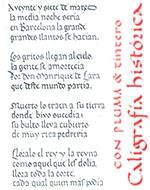 A veynte y siete de março
la media noche seria
en Barcelona la grande
grandes llantos se hacian.
Los gritos llegan al cielo
la gente se amortecia
Por don Manrique de Lara
que deste mundo partia.
Muerto lo traen a su tierra
donde bivo sucedia;
su bulto lleva cubierto
de muy rica pedreria
Lloralo el rey y la reyna
como aquel que les dolia.
llora toda la corte,
cada qual quien mas podia
con PLUMA & tintero
Caligrafía histórica